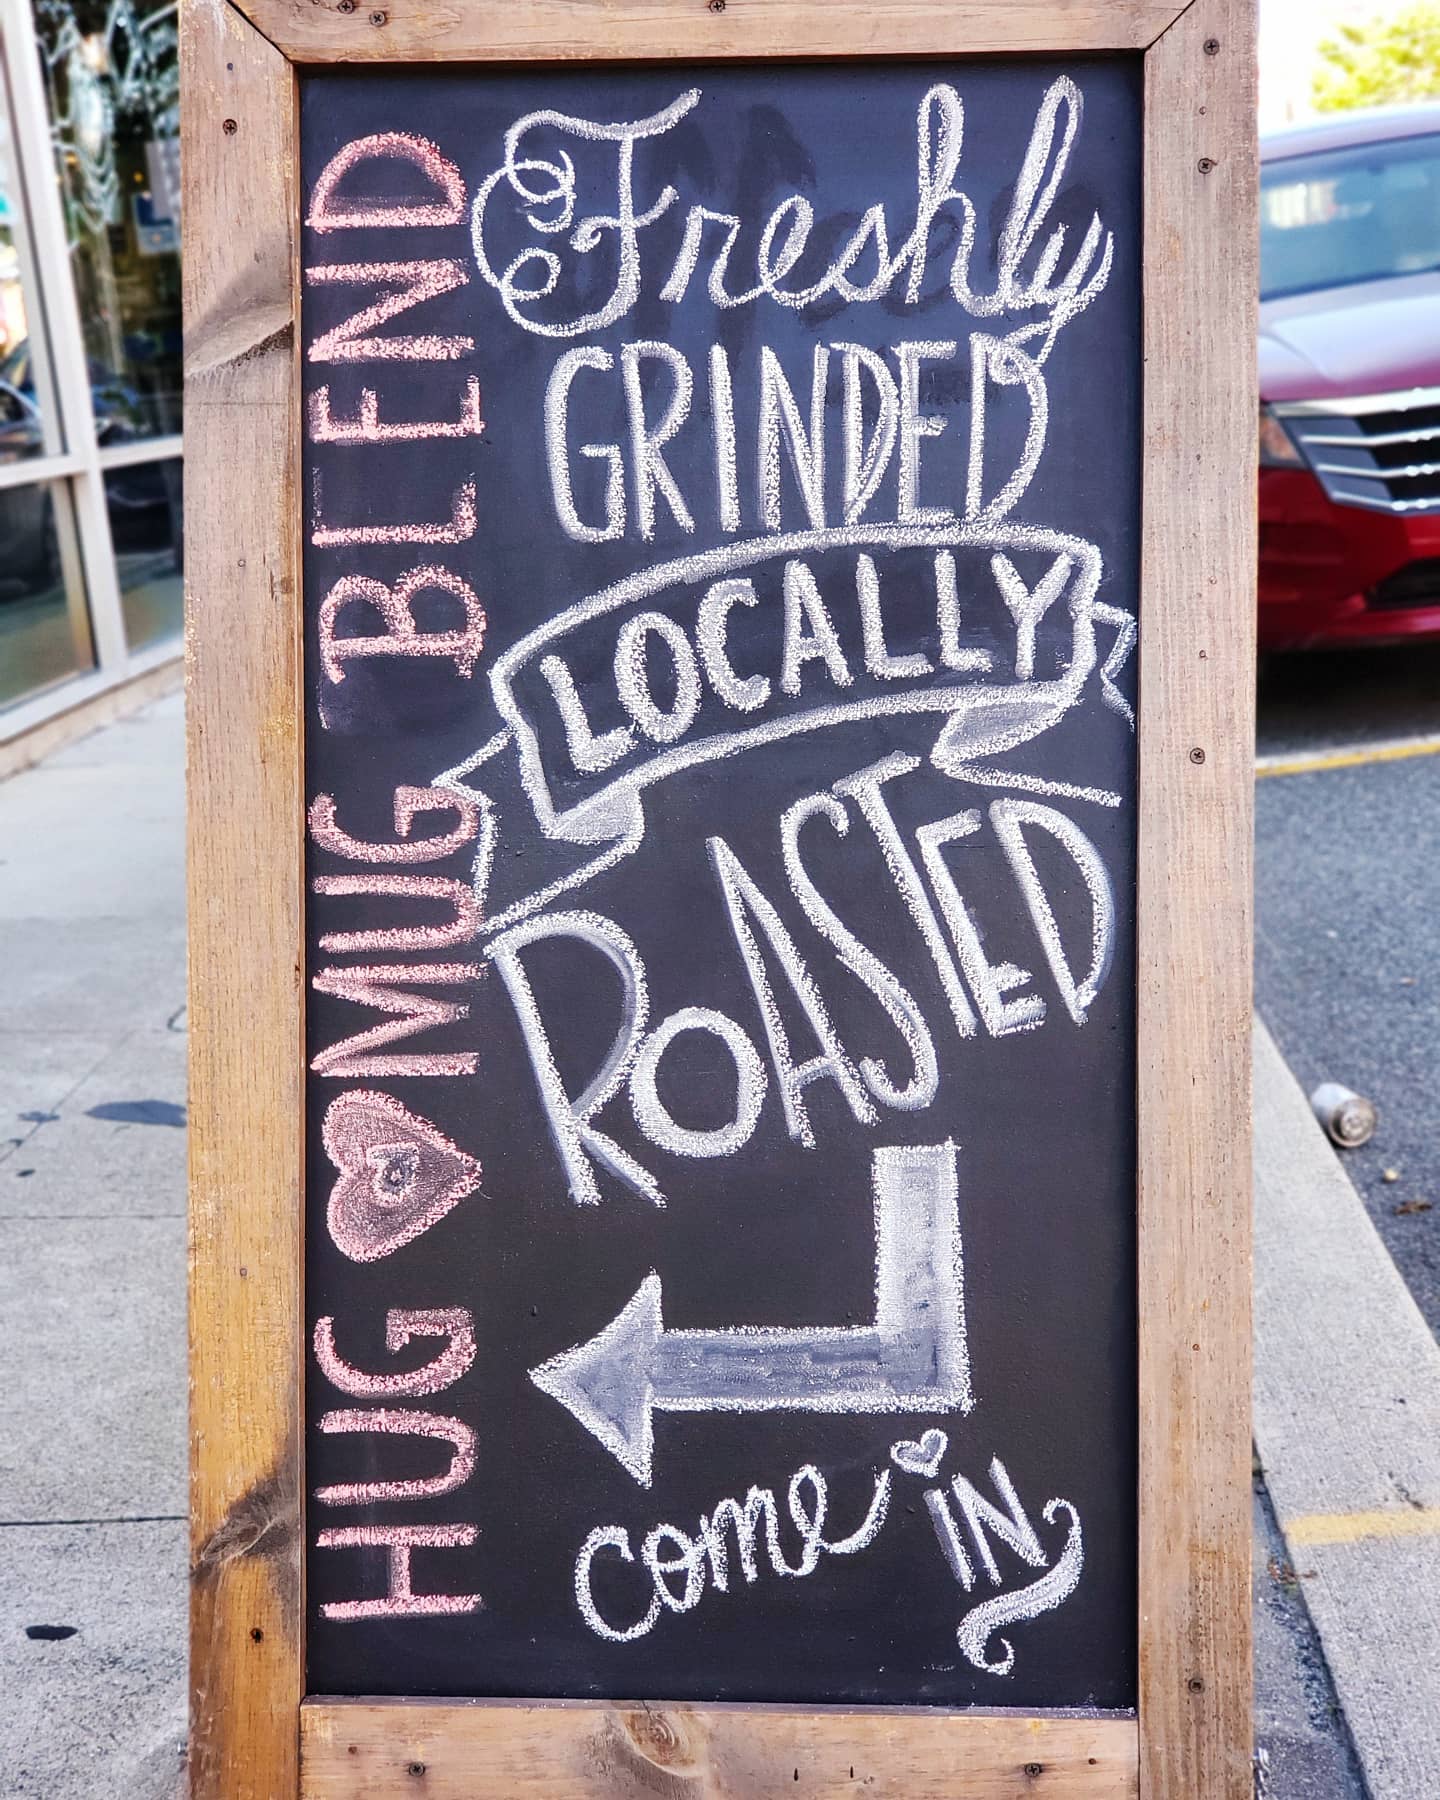 HUG MUG BLEND
Freshly
GRINDED
LOCALLY
ROASTED
come IN